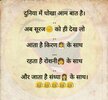 दुनिया में धोखा आम बात है।
अब सूरज 🌞 को ही देख लो
आता है किरण 👩 के साथ
रहता है रोशनी 👩 के साथ
और जाता है संध्या 👩 के साथ।